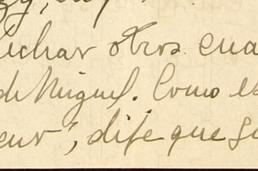 echar otros cua
de Miguel. Como el
eur", dije que